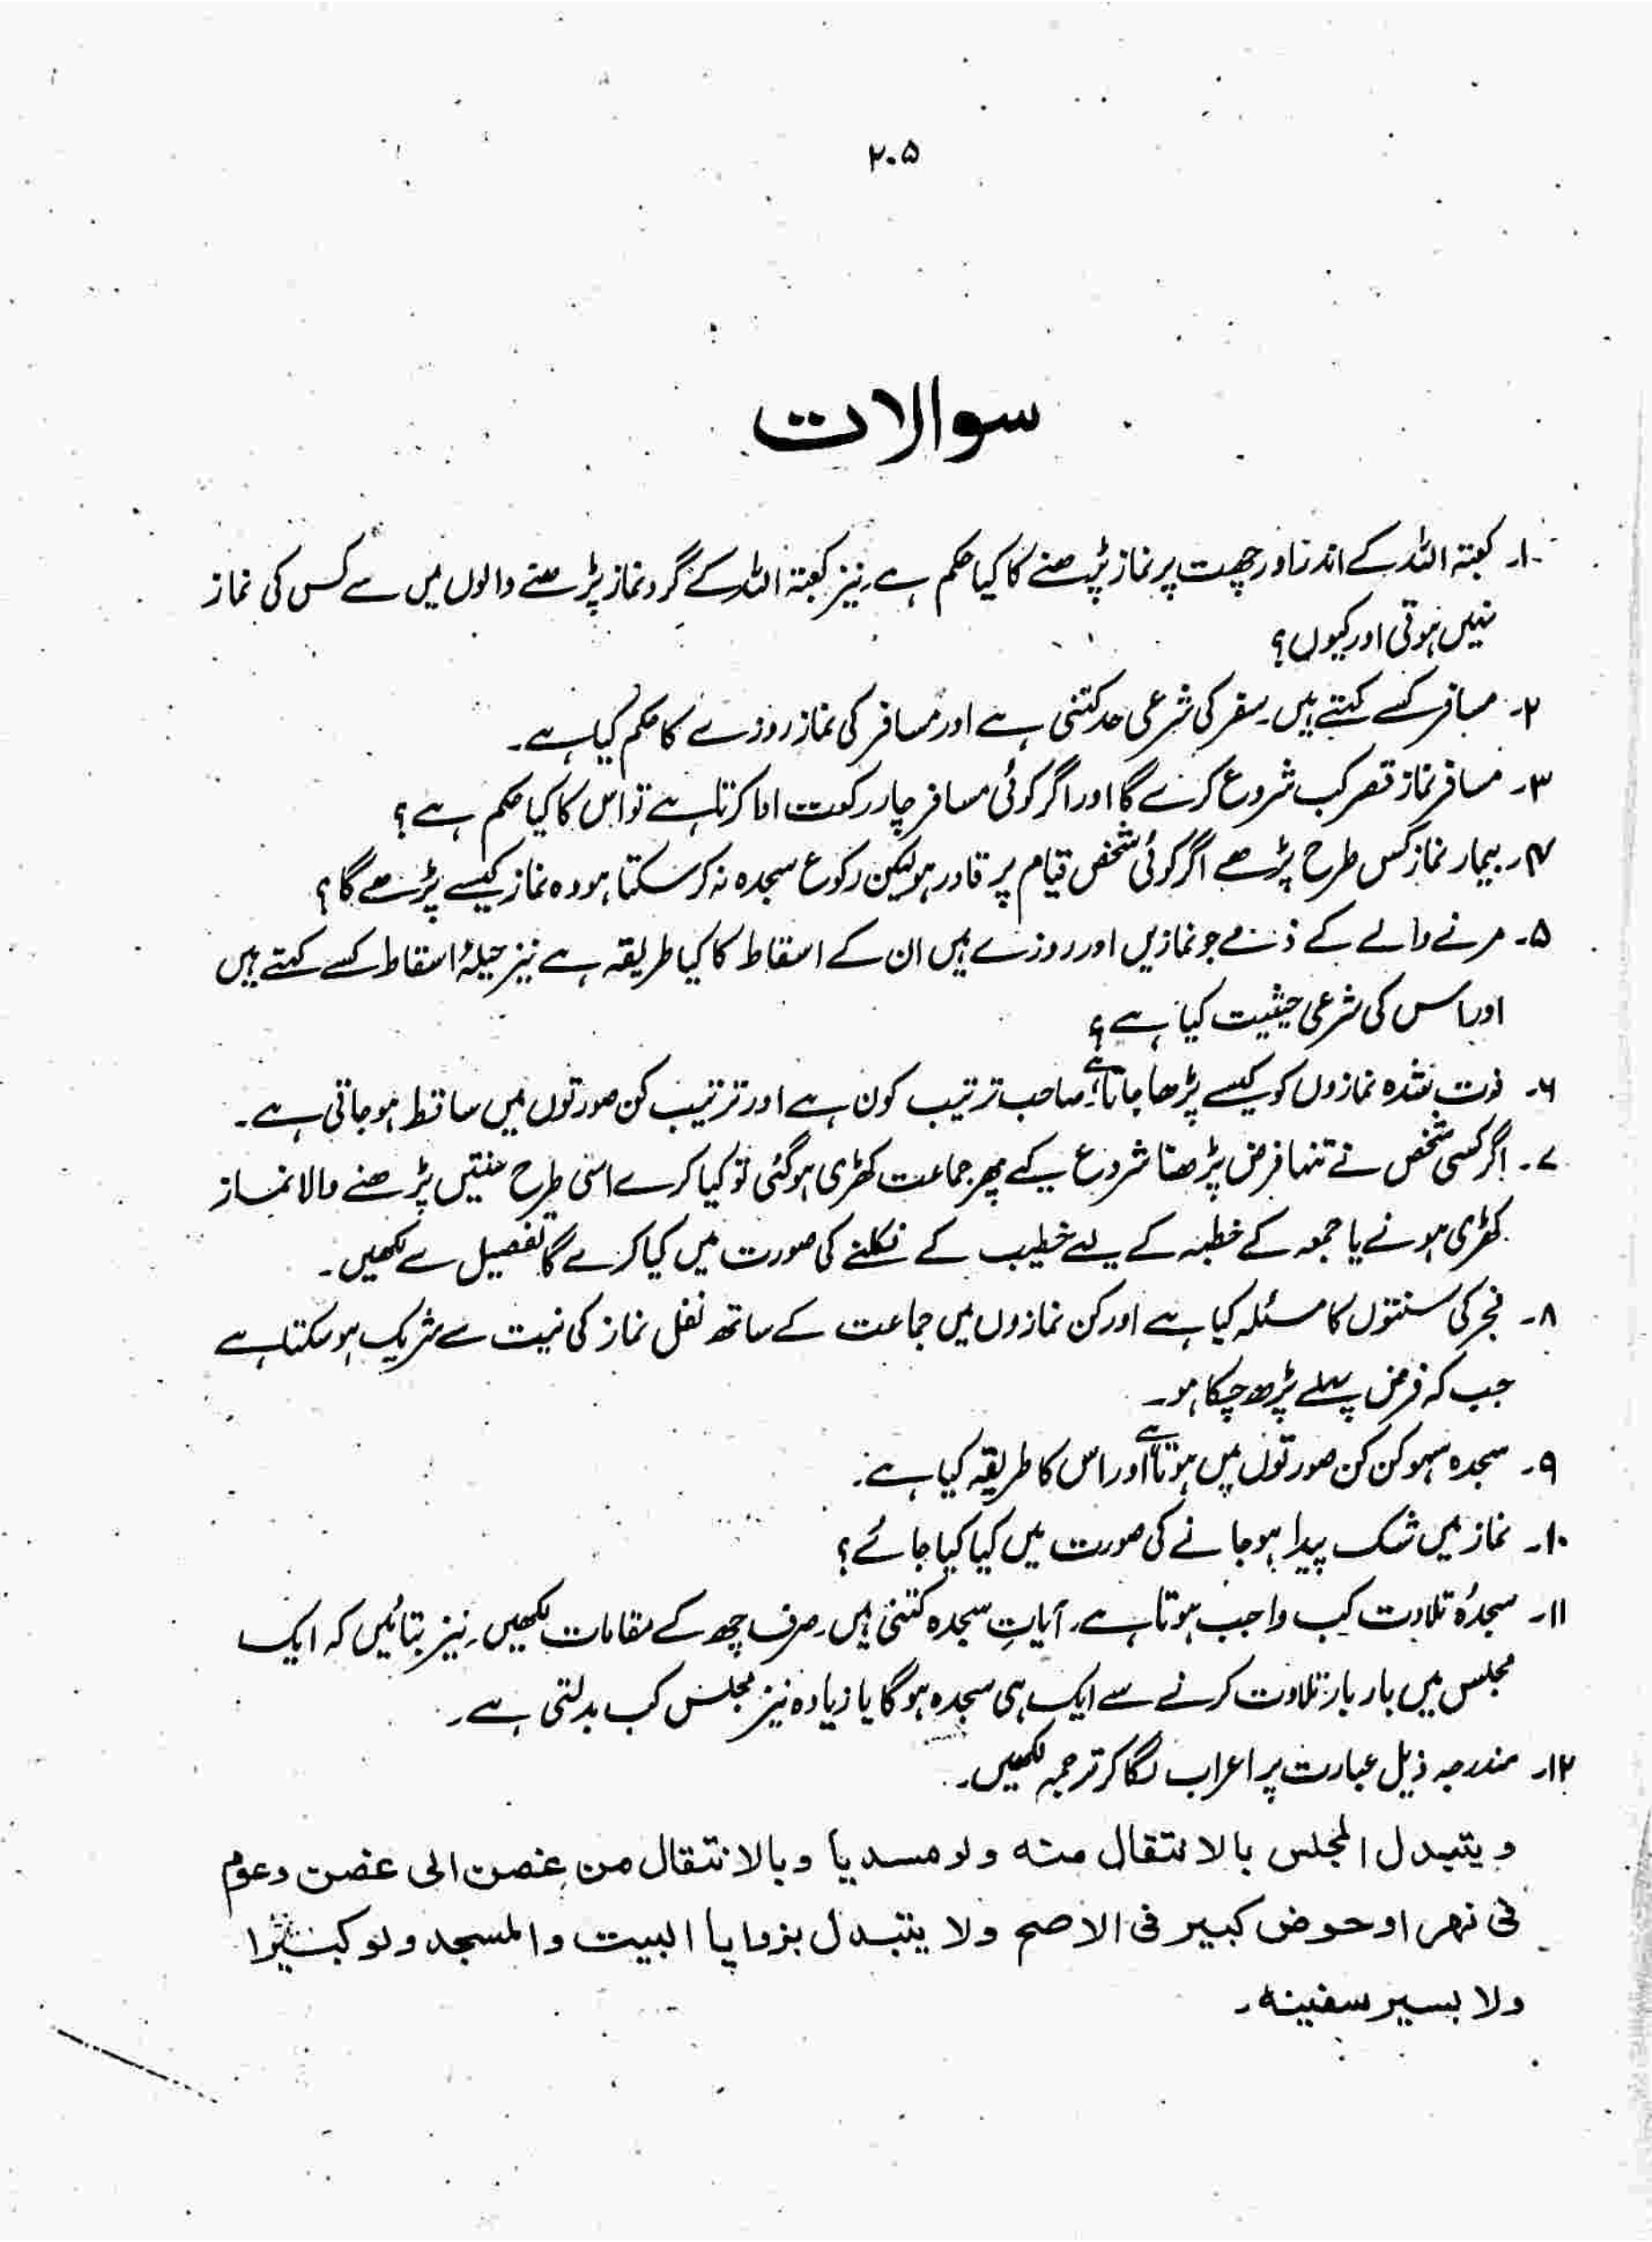 ۲۰۵
سوالات
۱۔ کعبۃ اللہ کے اندر اور چھت پر نماز پڑھنے کا کیا حکم ہے نیز کعبۃ اللہ کے گرد نماز پڑھنے والوں میں سے کس کی نماز
نہیں ہوتی اور کیوں؟
۲۔ مسافر کسے کہتے ہیں۔ سفر کی شرعی حد کتنی ہے اور مسافر کی نماز روزے کا حکم کیا ہے۔
۳۔ مسافر نماز قصر کب شروع کرے گا اور اگر کوئی مسافر چار رکعت ادا کرتا ہے تو اس کا کیا حکم ہے؟
۴۔ بیمار نماز کس طرح پڑھے اگر کوئی شخص قیام پر قادر ہو لیکن رکوع سجدہ نہ کر سکتا ہو وہ نماز کیسے پڑھے گا؟
۵۔ مرنے والے کے ذمے جو نمازیں اور روزے ہیں ان کے اسقاط کا کیا طریقہ ہے نیز حیلۂ اسقاط کسے کہتے ہیں
اور اس کی شرعی حیثیت کیا ہے؟
۶۔ فوت شدہ نمازوں کو کیسے پڑھا جاتا ہے۔ صاحب ترتیب کون ہے اور ترتیب کن صورتوں میں ساقط ہو جاتی ہے۔
۷۔ اگر کسی شخص نے تنہا فرض پڑھنا شروع کیے پھر جماعت کھڑی ہو گئی تو کیا کرے اسی طرح سنتیں پڑھنے والا نماز
کھڑی ہونے یا جمعہ کے خطبہ کے لیے خطیب کے نکلنے کی صورت میں کیا کرے گا تفصیل سے لکھیں۔
۸۔ فجر کی سنتوں کا مسئلہ کیا ہے اور کن نمازوں میں جماعت کے ساتھ نفل نماز کی نیت سے شریک ہو سکتا ہے
جب کہ فرض پہلے پڑھ چکا ہو۔
۹۔ سجدہ سہو کن کن صورتوں میں ہوتا ہے اور اس کا طریقہ کیا ہے۔
۱۰۔ نماز میں شک پیدا ہو جانے کی صورت میں کیا کیا جائے؟
۱۱۔ سجدۂ تلاوت کب واجب ہوتا ہے۔ آیاتِ سجدہ کتنی ہیں۔ صرف چھ کے مقامات لکھیں۔ نیز بتائیں کہ ایک
مجلس میں بار بار تلاوت کرنے سے ایک ہی سجدہ ہو گا یا زیادہ نیز مجلس کب بدلتی ہے۔
۱۲۔ مندرجہ ذیل عبارت پر اعراب لگا کر ترجمہ لکھیں۔
و یتبدل المجلس بالانتقال منه ولو مسدیا وبالانتقال من غصن الی غصن وعوم
فی نهر او حوض کبیر فی الاصح ولا یتبدل بزوایا البیت والمسجد ولو کبیرا
ولا بسیر سفینه۔